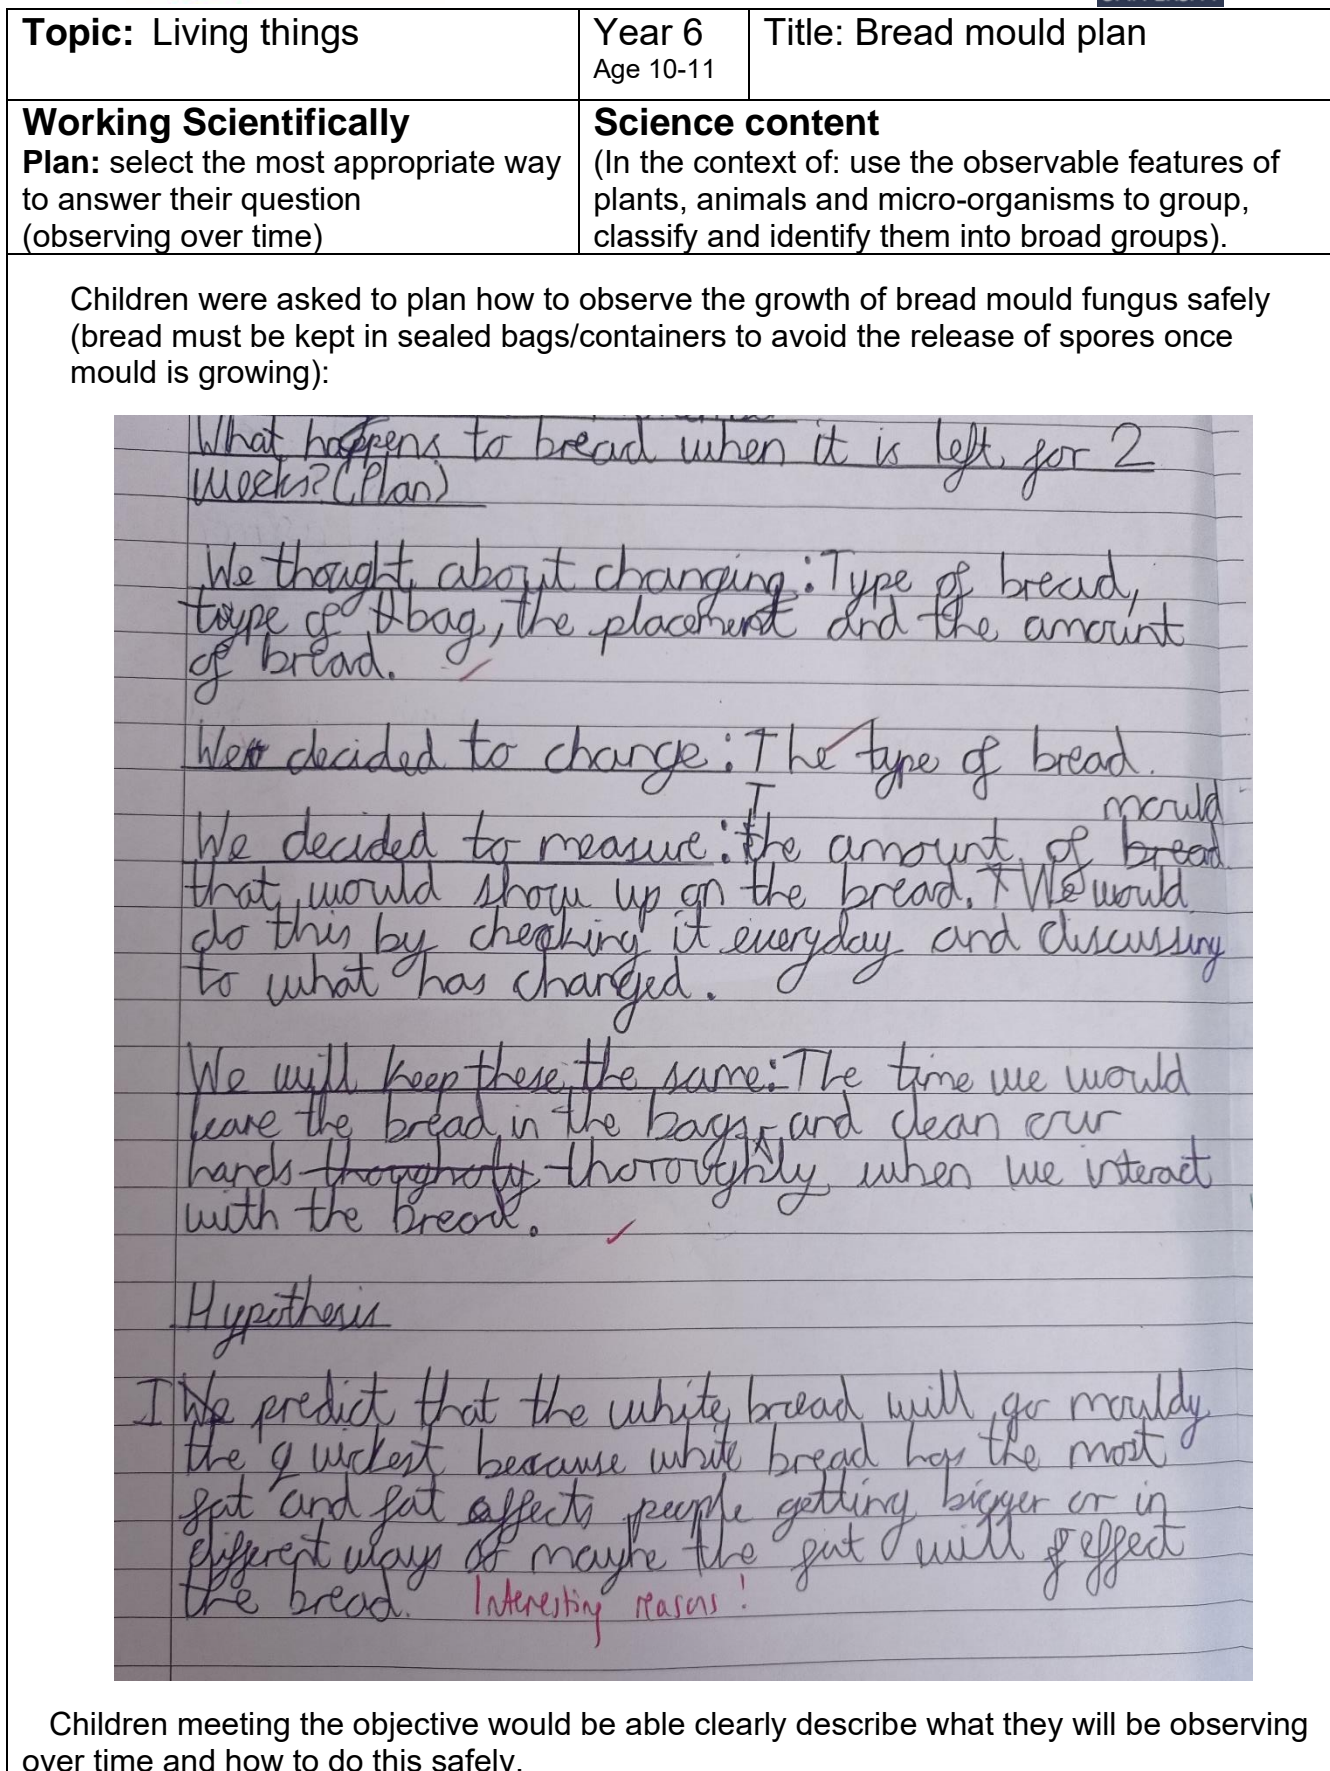 Topic: Living things
Year 6
Age 10-11
Title: Bread mould plan
Working Scientifically
Plan: select the most appropriate way
to answer their question
(observing over time)
Science content
(In the context of: use the observable features of
plants, animals and micro-organisms to group,
classify and identify them into broad groups).
Children were asked to plan how to observe the growth of bread mould fungus safely
(bread must be kept in sealed bags/containers to avoid the release of spores once
mould is growing):
What happens to bread when it is left for 2
weeks? (Plan)
We thought about changing: Type of bread,
type of bag, the placement and the amount
of bread.
We decided to change: The type of bread.
mould
We decided to measure: The amount of bread
that would show up on the bread. We would
do this by checking it everyday and discussing
to what has changed.
We will keep these the same: The time we would
leave the bread in the bags, and clean our
hands thoroughly when we interact
with the bread.
Hypothesis
I We predict that the white bread will go mouldy
the quickest because white bread has the most
fat and fat affects people getting bigger or in
different ways so maybe the fat will effect
the bread. Interesting reasons!
Children meeting the objective would be able clearly describe what they will be observing
over time and how to do this safely.